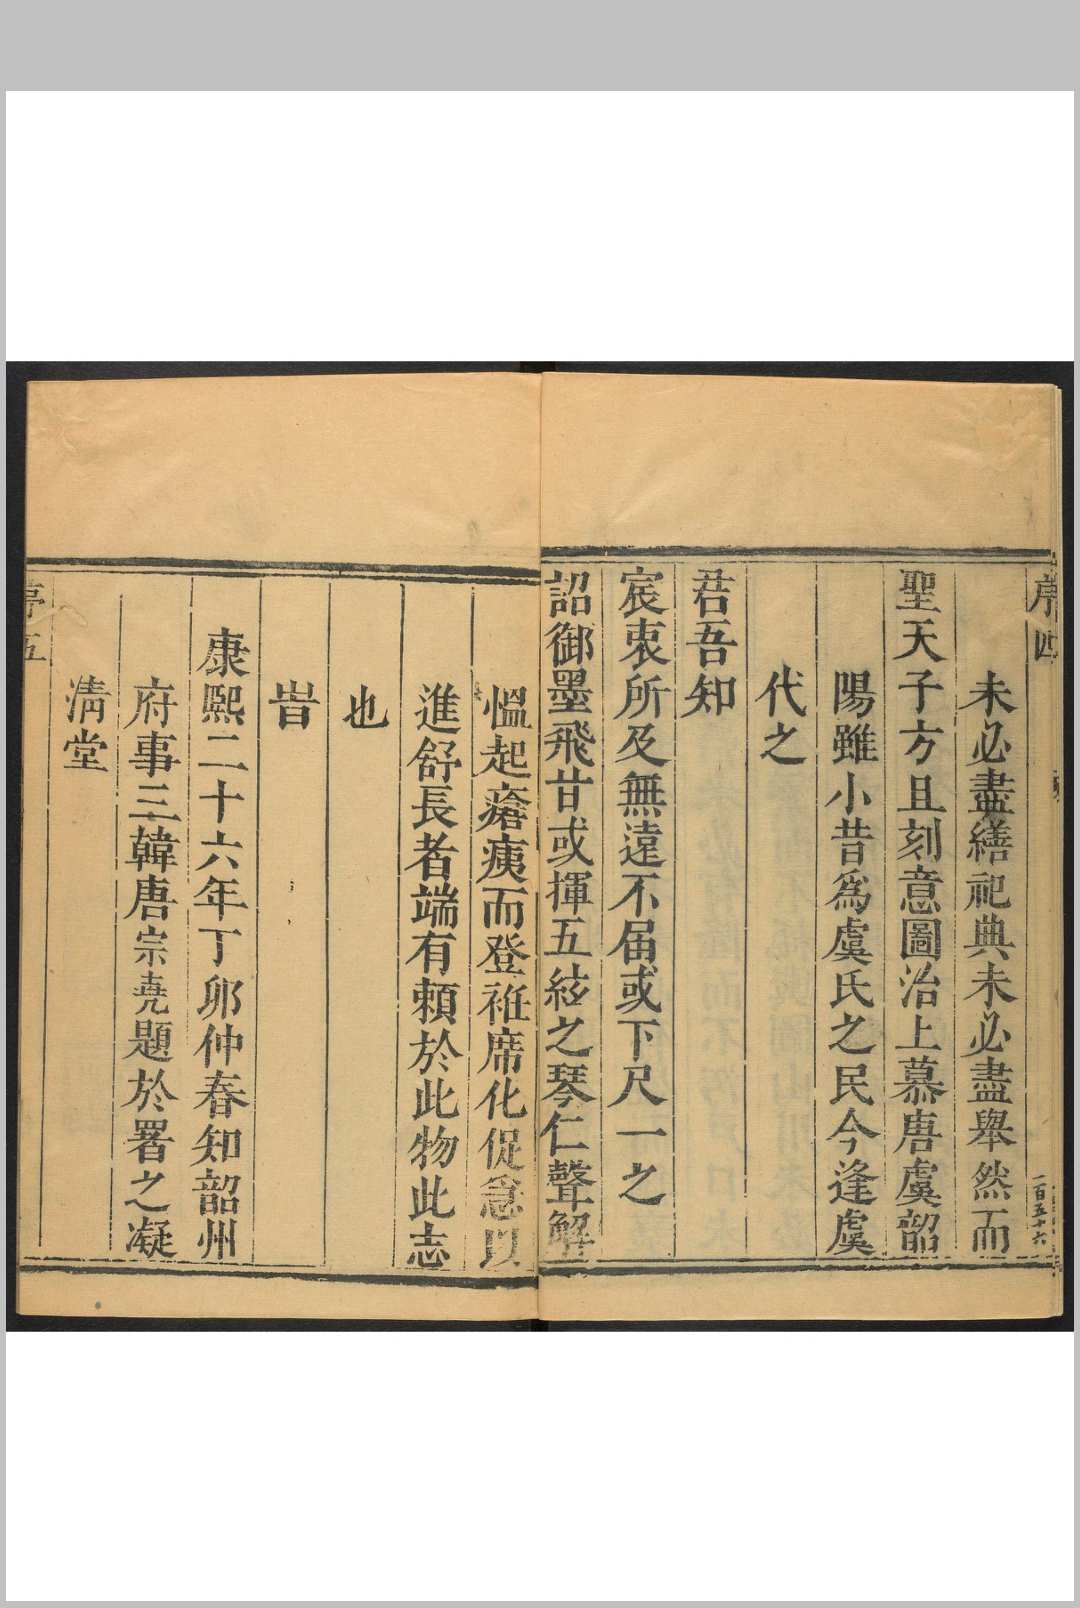 序四
一百五十六
未必盡繕祀典未必盡舉然而
聖天子方且刻意圖治上慕唐虞韶
陽雖小昔爲虞氏之民今逢虞
代之
君吾知
宸衷所及無遠不届或下尺一之
詔御墨飛甘或揮五絃之琴仁聲解
慍起瘡痍而登袵席化促急以
進舒長者端有賴於此物此志
也
旹
康熙二十六年丁卯仲春知韶州
府事三韓唐宗堯題於署之凝
清堂
序五